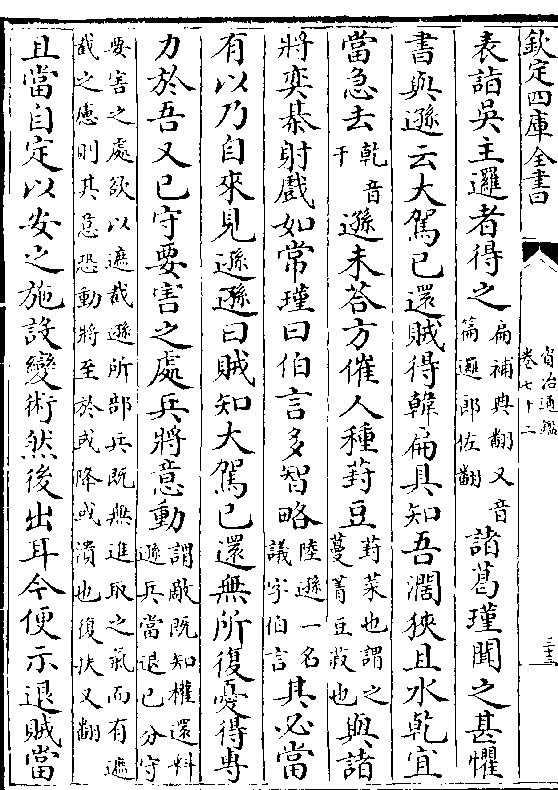 欽定四庫全書
資治通鑑
卷七十二
表詣吳主邏者得之扁補典翻又音篇邏郎佐翻諸葛瑾聞之甚懼
書與遜云大駕已還賊得韓扁具知吾濶狹且水乾宜
當急去乾音干遜未荅方催人種葑豆葑菜也謂之蔓菁豆菽也與諸
將奕棊射戲如常瑾曰伯言多智略陸遜一名議字伯言其必當
有以乃自來見遜遜曰賊知大駕已還無所復憂得專
力於吾又已守要害之處兵將意動謂敵既知權還料遜兵當退已分守
要害之處欲以遮截遜所部兵既無進取之氣而有遮截之慮則其意恐動將至於或降或潰也復扶又翻
且當自定以安之施設變術然後出耳今便示退賊當